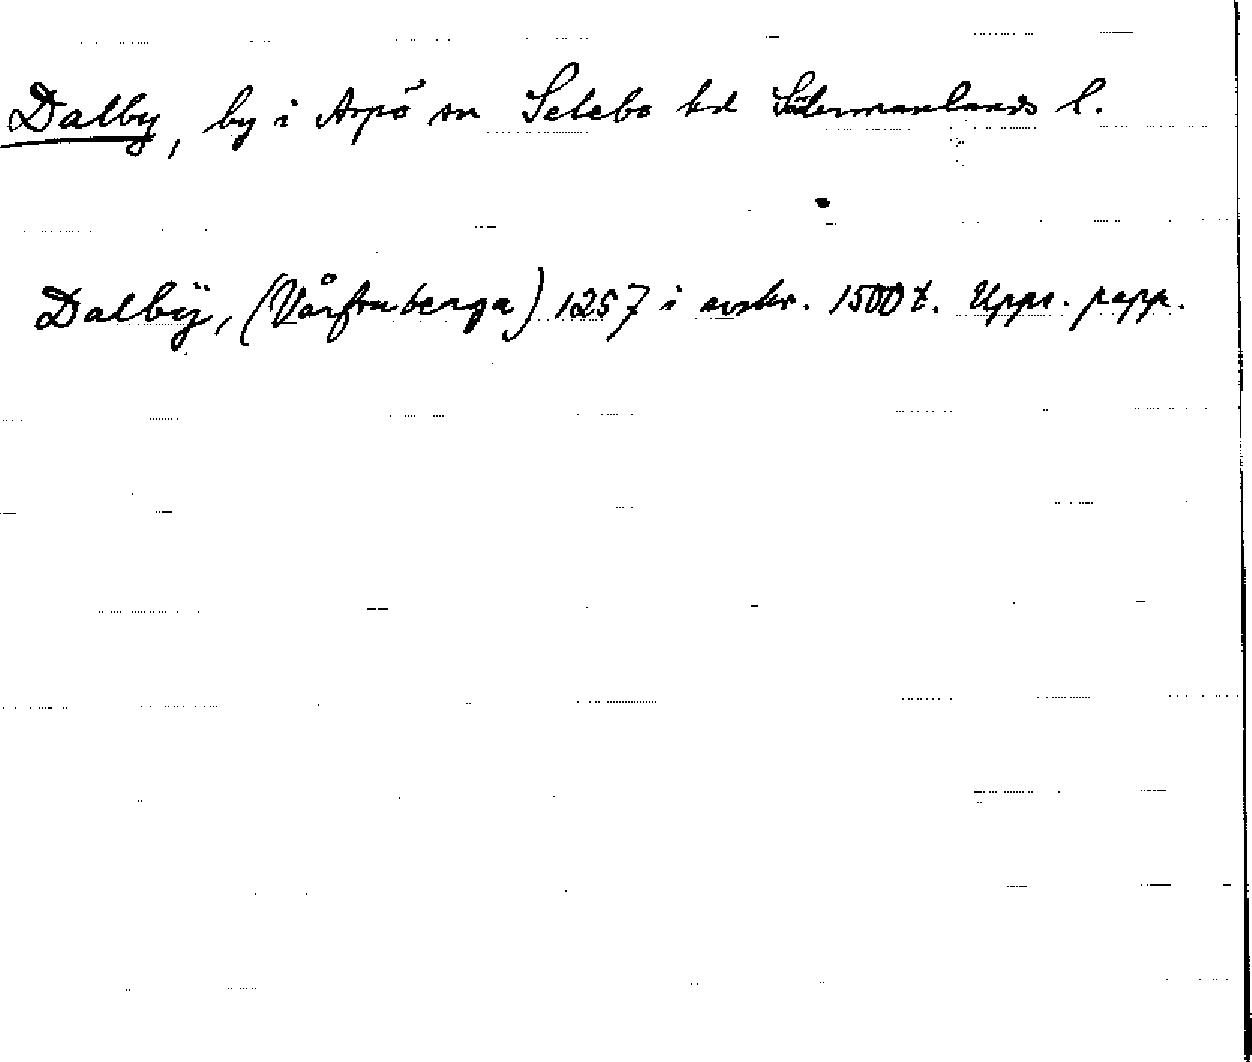 Dalby, by i Aspö sn Selebo hd Södermanlands l.
Dalbÿ, (Vårfruberga) 1257 i avskr. 1500 t. Upps. papp.